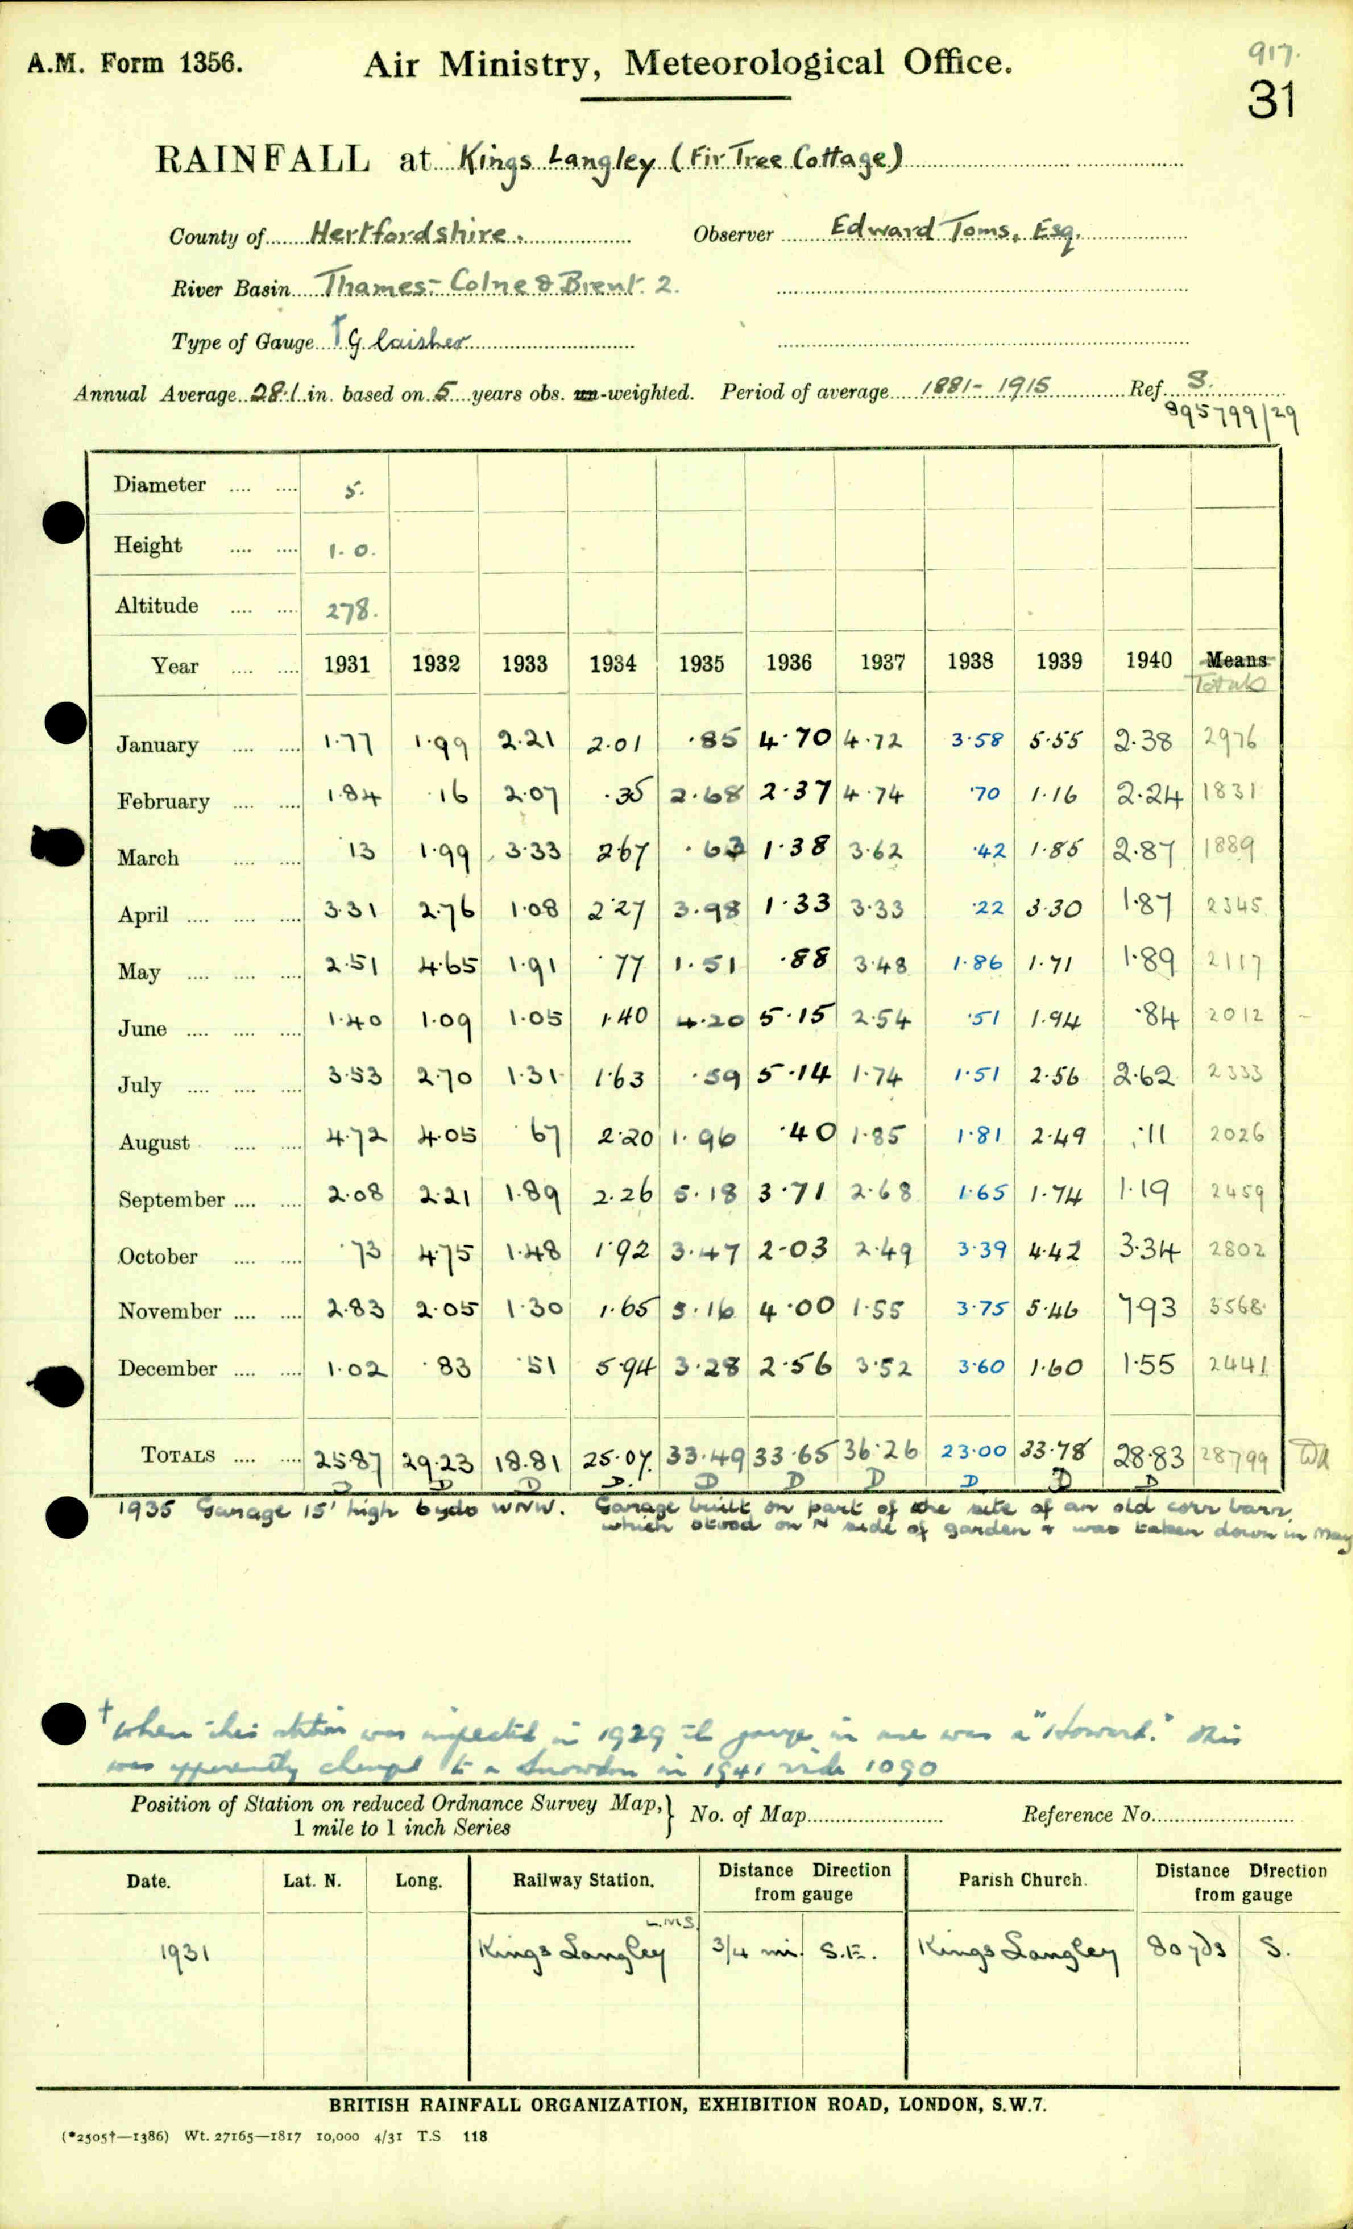 A.M. Form 1356.
Air Ministry, Meteorological Office.
917.
31
RAINFALL at Kings Langley (Fir Tree Cottage)
County of Hertfordshire. Observer Edward Toms, Esq.
River Basin Thames-Colne & Brent 2.
Type of Gauge † Glaisher
Annual Average 28.1 in. based on 5 years obs. un-weighted. Period of average 1881-1915 Ref. S.
895799/29
Diameter .... .... 5.
Height .... .... 1.0.
Altitude .... .... 278.
Year .... .... 1931 1932 1933 1934 1935 1936 1937 1938 1939 1940 Means
Totals
January .... .... 1.77 1.99 2.21 2.01 .85 4.70 4.72 3.58 5.55 2.38 2976
February .... .... 1.84 .16 2.07 .35 2.68 2.37 4.74 .70 1.16 2.24 1831
March .... .... .13 1.99 3.33 2.67 .63 1.38 3.62 .42 1.85 2.87 1889
April .... .... .... 3.31 2.76 1.08 2.27 3.98 1.33 3.33 .22 3.30 1.87 2345
May .... .... .... 2.51 4.65 1.91 .77 1.51 .88 3.48 1.86 1.71 1.89 2117
June .... .... .... 1.40 1.09 1.05 1.40 4.20 5.15 2.54 .51 1.94 .84 2012
July .... .... .... 3.53 2.70 1.31 1.63 .59 5.14 1.74 1.51 2.56 2.62 2333
August .... .... 4.72 4.05 .67 2.20 1.96 .40 1.85 1.81 2.49 .11 2026
September .... .... 2.08 2.21 1.89 2.26 5.18 3.71 2.68 1.65 1.74 1.19 2459
October .... .... .73 4.75 1.48 1.92 3.47 2.03 2.49 3.39 4.42 3.34 2802
November .... .... 2.83 2.05 1.30 1.65 5.16 4.00 1.55 3.75 5.46 7.93 3568
December .... .... 1.02 .83 .51 5.94 3.28 2.56 3.52 3.60 1.60 1.55 2441
TOTALS .... .... 25.87 29.23 18.81 25.07 33.49 33.65 36.26 23.00 33.78 28.83 28799
D D D D. D D D D D D
1935 Garage 15' high 6 yds WNW. Garage built on part of the site of an old corn barn,
which stood on N side of garden & was taken down in May
† When this station was inspected in 1929 the gauge in use was a "Howard". This
was apparently changed to a Snowdon in 1941 vide 1090
Position of Station on reduced Ordnance Survey Map,} No. of Map Reference No.
1 mile to 1 inch Series
Date. Lat. N. Long. Railway Station. Distance Direction from gauge Parish Church. Distance Direction from gauge
L.M.S.
1931 Kings Langley 3/4 mi. S.E. Kings Langley 80 yds S.
BRITISH RAINFALL ORGANIZATION, EXHIBITION ROAD, LONDON, S.W.7.
(*2505†—1386) Wt. 27165—1817 10,000 4/31 T.S 118